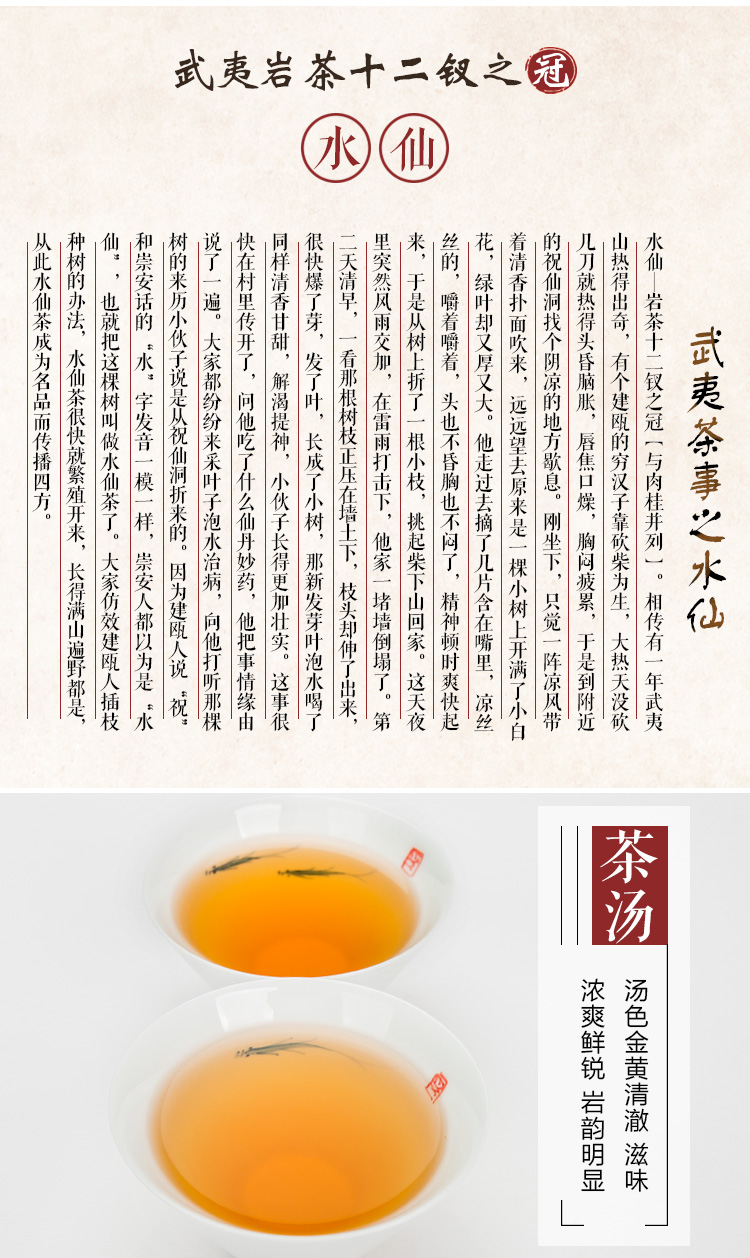 武夷岩茶十二钗之冠
水仙
武夷茶事之水仙
水仙—岩茶十二钗之冠【与肉桂并列】。相传有一年武夷
山热得出奇，有个建瓯的穷汉子靠砍柴为生，大热天没砍
几刀就热得头昏脑胀，唇焦口燥，胸闷疲累，于是到附近
的祝仙洞找个阴凉的地方歇息。刚坐下，只觉一阵凉风带
着清香扑面吹来，远远望去原来是一棵小树上开满了小白
花，绿叶却又厚又大。他走过去摘了几片含在嘴里，凉丝
丝的，嚼着嚼着，头也不昏胸也不闷了，精神顿时爽快起
来，于是从树上折了一根小枝，挑起柴下山回家。这天夜
里突然风雨交加，在雷雨打击下，他家一堵墙倒塌了。第
二天清早，一看那根树枝正压在墙土下，枝头却伸了出来，
很快爆了芽，发了叶，长成了小树，那新发芽叶泡水喝了
同样清香甘甜，解渴提神，小伙子长得更加壮实。这事很
快在村里传开了，问他吃了什么仙丹妙药，他把事情缘由
说了一遍。大家都纷纷来采叶子泡水治病，向他打听那棵
树的来历小伙子说是从祝仙洞折来的。因为建瓯人说“祝”
和崇安话的“水”字发音一模一样，崇安人都以为是“水
仙”，也就把这棵树叫做水仙茶了。大家仿效建瓯人插枝
种树的办法，水仙茶很快就繁殖开来，长得满山遍野都是，
从此水仙茶成为名品而传播四方。
茶汤
汤色金黄清澈 滋味
浓爽鲜锐 岩韵明显